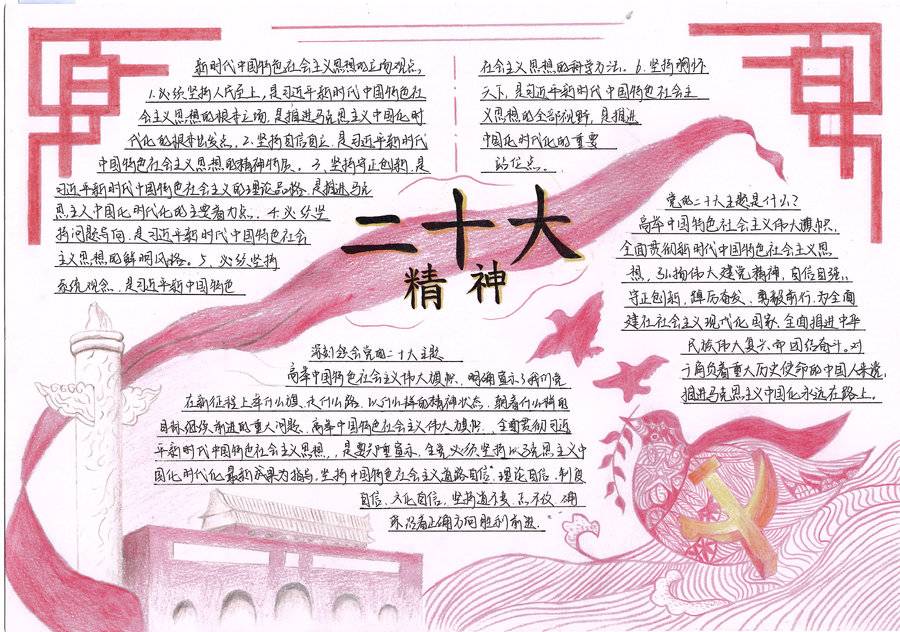 二十大
精神
新时代中国特色社会主义思想的立场观点,
1.必须坚持人民至上,是习近平新时代中国特色社
会主义思想的根本立场,是推进马克思主义中国化时
代化的根本出发点。2、坚持自信自立,是习近平新时代
中国特色社会主义思想的精神特质。3、坚持守正创新,是
习近平新时代中国特色社会主义的理论品格,是推进马克
思主义中国化时代化的主要着力点、4、必须坚
持问题导向,是习近平新时代中国特色社会
主义思想的鲜明风格。5、必须坚持
系统观念,是习近平新中国特色
社会主义思想的科学方法。6.坚持胸怀
天下,是习近平新时代中国特色社会主
义思想的全部视野,是推进
中国化时代化的重要
站位点。
党的二十大主题是什么?
高举中国特色社会主义伟大旗帜,
全面贯彻新时代中国特色社会主义思
想,弘扬伟大建党精神,自信自强、
守正创新,踔厉奋发、勇毅前行,为全面
建社社会主义现代化国家、全面推进中华
民族伟大复兴而团结奋斗。对
于肩负着重大历史使命的中国人来说,
推进马克思主义中国化永远在路上。
深刻领会党的二十大主题
高举中国特色社会主义伟大旗帜,明确宣示了我们党
在新征程上举什么旗、走什么路、以什么样的精神状态、朝着什么样的
目标继续前进的重大问题、高举中国特色社会主义伟大旗帜、全面贯彻习近
平新时代中国特色社会主义思想,是要郑重宣示,全党必须坚持以马克思主义中
国化时代化最新成果为指导,坚持中国特色社会主义道路自信、理论自信、制度
自信、文化自信,坚持道不变、志不改,确
保沿着正确方向胜利前进.